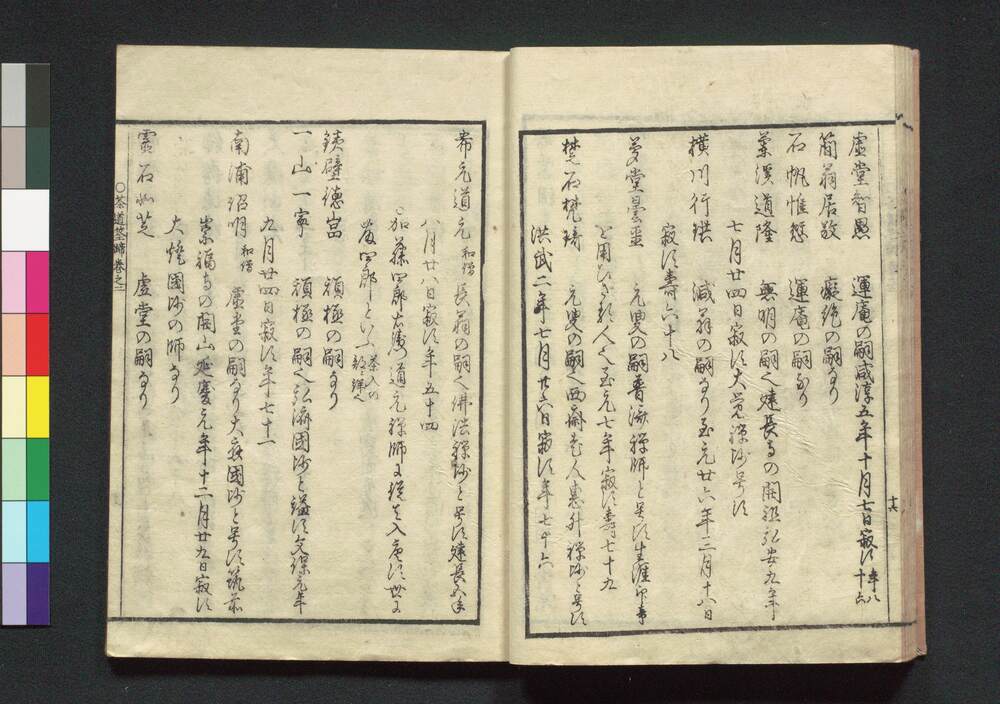 虚堂智愚　運庵の嗣咸淳五年十月七日寂す年八十六
簡翁居敬　癡絶の嗣なり
石帆惟衍　運庵の嗣なり
蘭渓道隆　無明の嗣也建長寺の開祖弘安九年
七月廿四日寂す大覚禅師と号す
横川行珙　滅翁の嗣なり至元廿六年三月十八日
寂す寿六十八
夢堂曇噩　元叟の嗣普済禅師と号す
と用ひざる人也至元七年寂す寿七十九
楚石梵琦　元叟の嗣也西斎老人恵弁禅師と号す
洪武二年七月廿六日寂す年七十六
十六
希元道元　和僧　長翁の嗣也佛法禅師と号す建長五年
八月廿八日寂す年五十四
○加藤四郎左衛門道元禅師に従て入唐す世に
藤四郎といふ茶入の
一山一寧　頑極の嗣也弘済國師と諡す文保元年
九月廿四日寂す年七十一
南浦紹明　和僧　虚堂の嗣なり大應國師と号す筑前
崇福寺の開山延慶元年十二月廿九日寂す
大燈國師の師なり
霊石如芝　虚堂の嗣なり
○茶道筌蹄巻之二